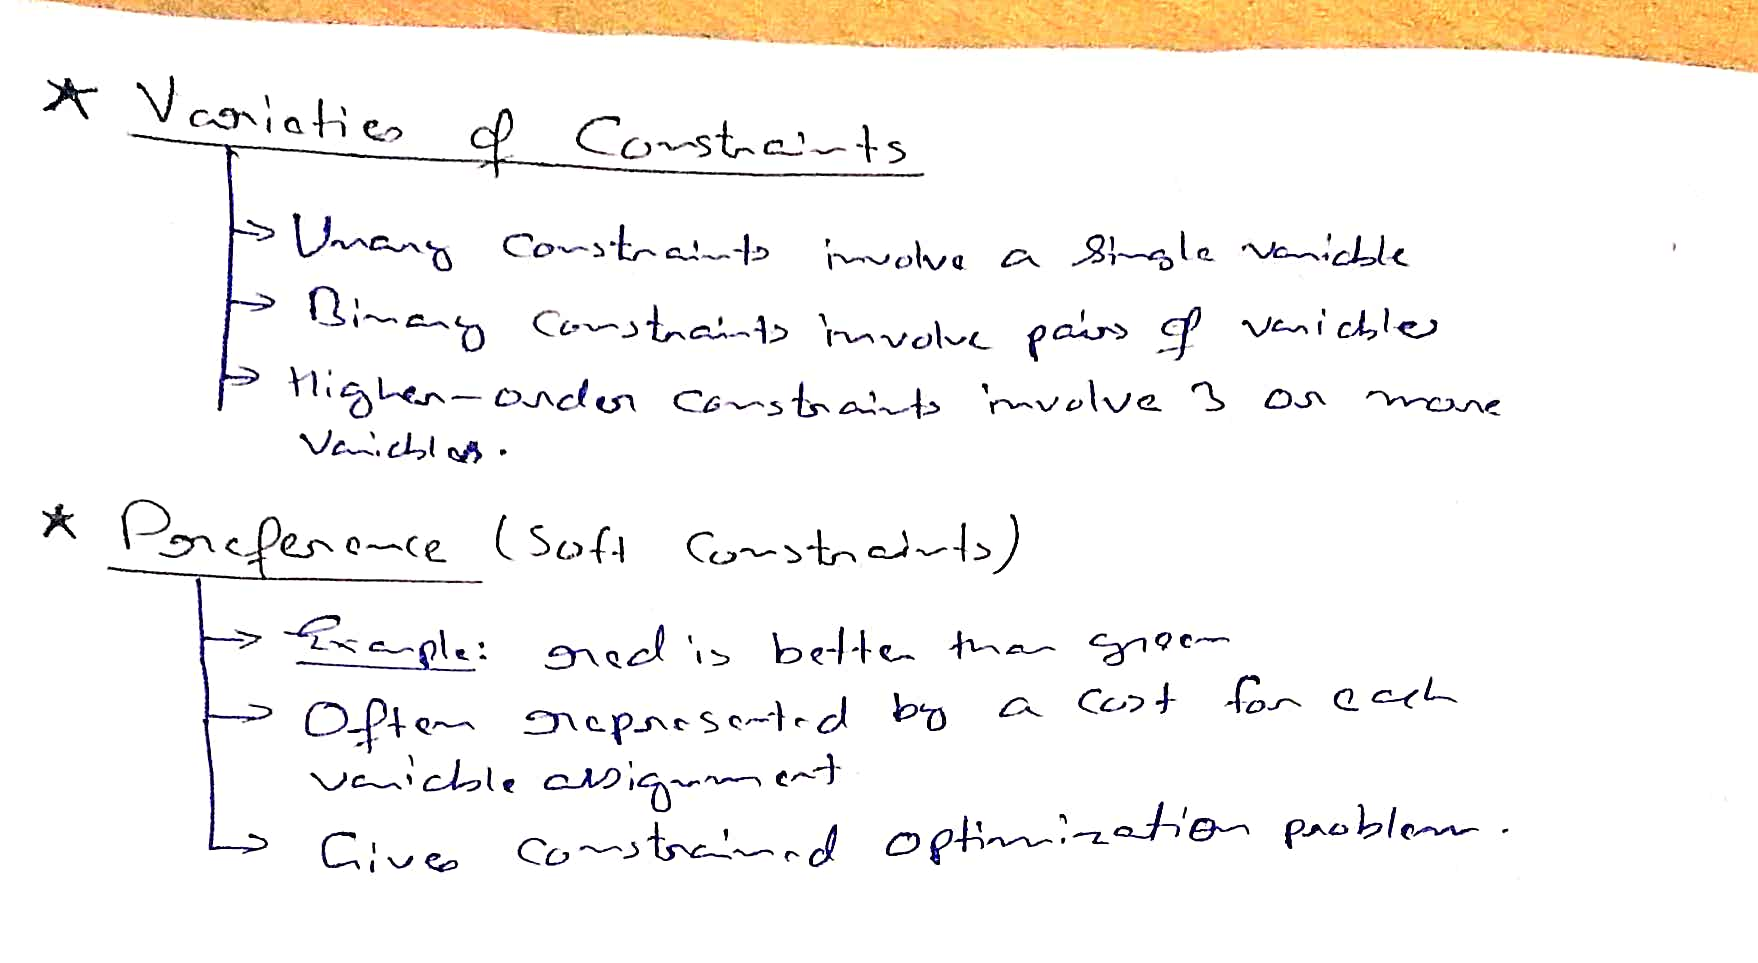 * Varieties of Constraints
→ Unary constraints involve a single variable
→ Binary constraints involve pairs of variables
→ Higher-order constraints involve 3 or more
variables.
* Preference (Soft Constraints)
→ Example: red is better than green
→ Often represented by a cost for each
variable assignment
→ Gives constrained optimization problem.